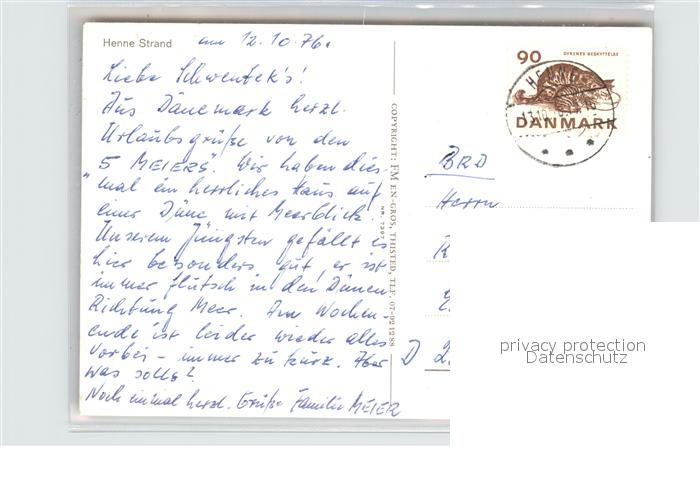 Henne Strand am 12.10.76.
Liebe Schwentek's!
Aus Dänemark herzl.
Urlaubsgrüße von den
"5 MEIERS". Wir haben dies
mal ein herrliches Haus auf
einer Düne mit Meerblick.
Unserem Jüngsten gefällt es
hier besonders gut, er ist
immer flutsch in den Dünen
Richtung Meer. Am Wochen-
ende ist leider wieder alles
vorbei - immer zu kurz. Aber
was solls?
Noch einmal herzl. Grüße Familie MEIER
COPYRIGHT: FM EN-GROS, THISTED, TLF. 07-921288
NR. 7297
90 DYRENES BESKYTTELSE
HENNE
DANMARK
BRD
Herrn
K
D 2
privacy protection
Datenschutz